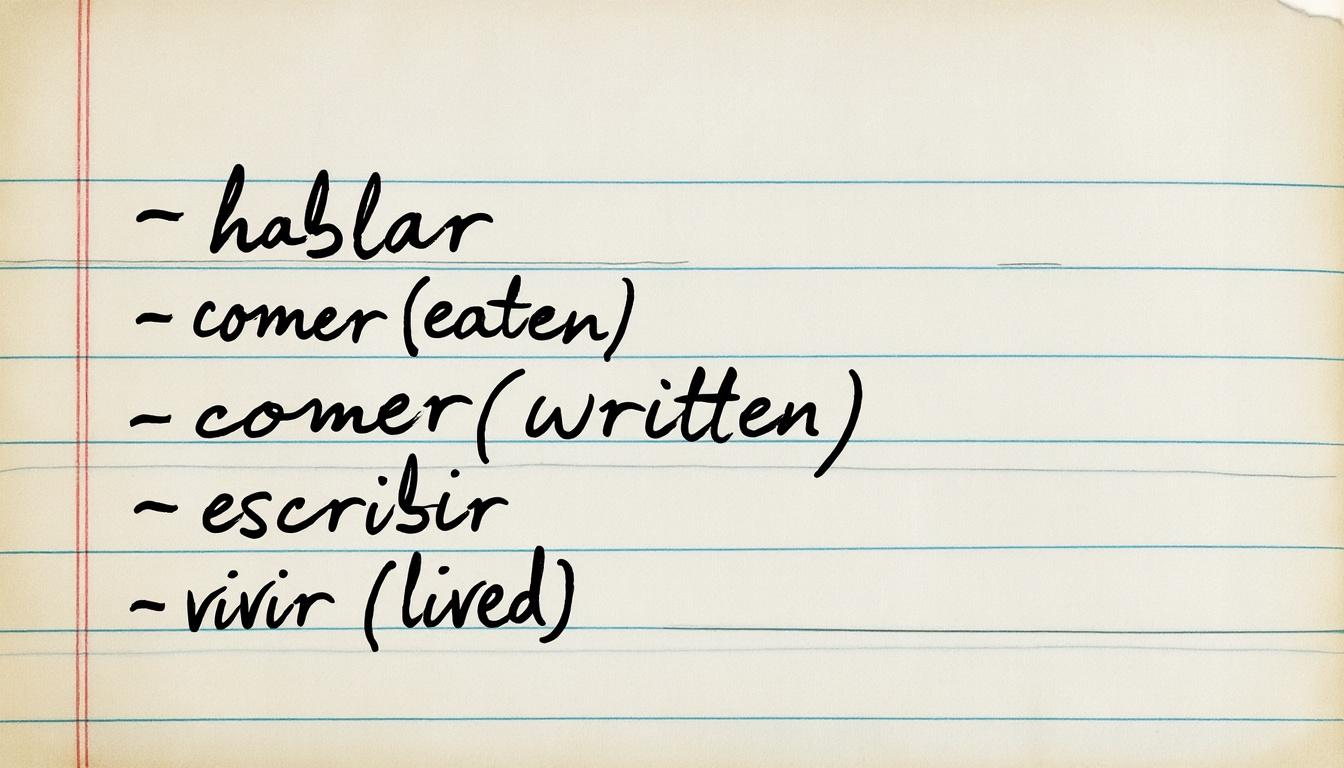 ~ hablar
~ comer (eaten)
~ comer (written)
~ escribir
~ vivir (lived)